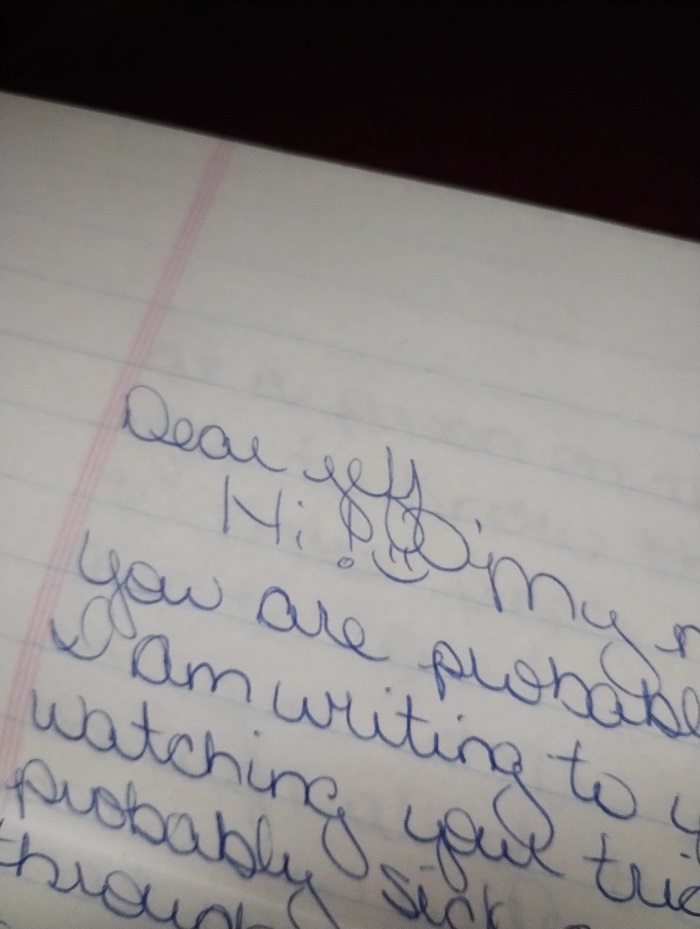 Dear jeff
Hi! I'm my n
you are probabl
I am writing to y
watching your tri
probably sick
through